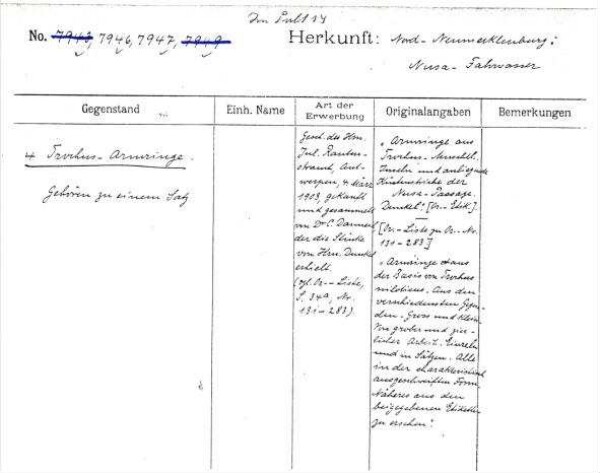 In Pult 14
No. 7943, 7946, 7947, 7949
Herkunft: Nord-Neumecklenburg;
Nusa-Fahrwasser
Gegenstand
Einh. Name
Art der Erwerbung
Originalangaben
Bemerkungen
4 Trochus-Armringe.
Gehören zu einem Satz
Gesch. des Hrn.
Jul. Rauten-
strauch, Ant-
werpen, 4 März
1903, gekauft
und gesammelt
von Dr C.
der die Stücke
von Hrn. Dunkel
erhielt.
(vgl. Or.-Liste,
S. 34a, No.
131-283).
"Armringe aus
Trochus-Muschel.
Inseln und anliegende
Küstenstriche der
Nusa-Passage.
Dunkel." [Or.-Etik.].
[Or.-Liste zu Or.-No.
131-283]
"Armringe aus
der Basis von Trochus
niloticus. Aus den
verschiedensten Gegen-
den. Gross und klein.
Von grober und zier-
licher Arbeit. Einzeln
und in Sätzen. Alle
in der charakteristisch
ausgeschweiften Form.
Näheres aus den
beigegebenen Etiketten
zu ersehen".